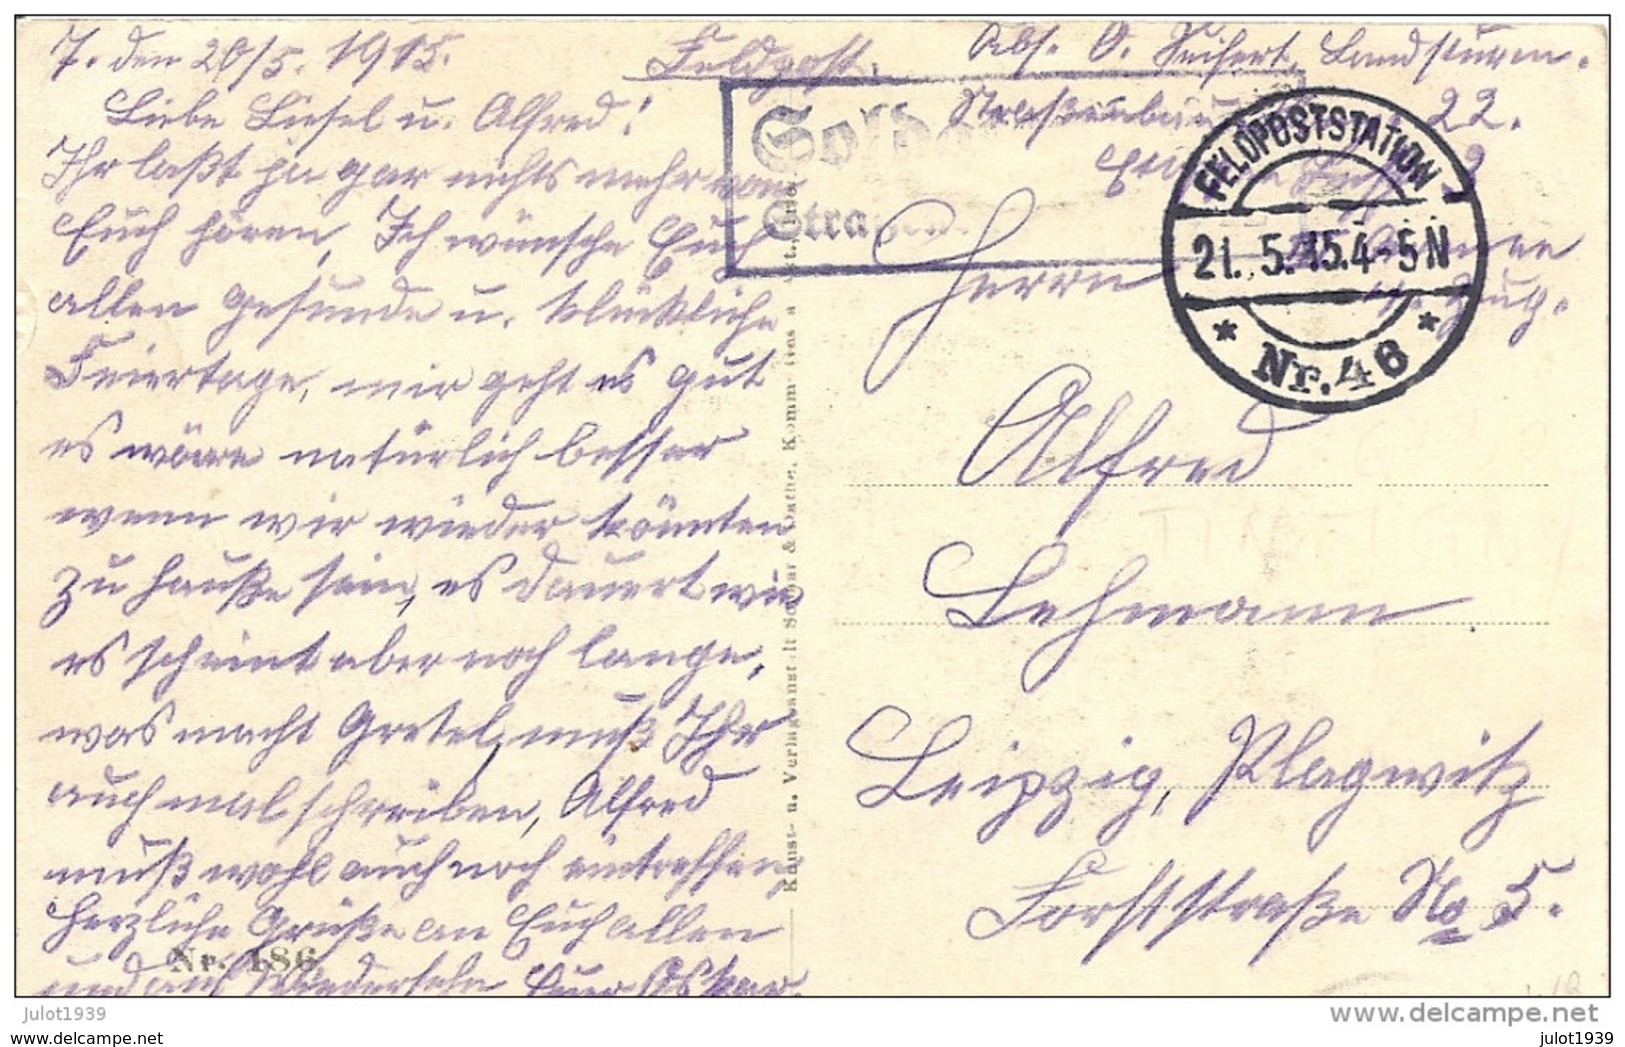 7. den 20/5. 1915.
Feldpost.
Abs. O. Seifert, Landsturm.
Straßenbau 22.
Armee
Zug.
Liebe Liesel u. Alfred!
Ihr laßt ja gar nichts mehr von
Euch hören, Ich wünsche Euch
allen gesunde u. klückliche
Feiertage, mir geht es gut
es wäre natürlich besser
wenn wir wieder könnten
zu Hauße sein, es dauert wie
es scheint aber noch lange,
was macht Gretel, muß Ihr
auch mal schreiben, Alfred
muß wohl auch noch eintreffen,
Herzliche Grüße an Euch allen
und auf Wiedersehn Euer Oskar.
Nr. 186
Kunst- u. Verlagsanstalt & Dathe, Komm
Soldat
FELDPOSTSTATION
21. 5. 15. 4-5 N
* Nr. 46 *
Herrn
Alfred
Lehmann
Leipzig, Plagwitz
Forststraße No 5.
julot1939
www.delcampe.net
julot1939